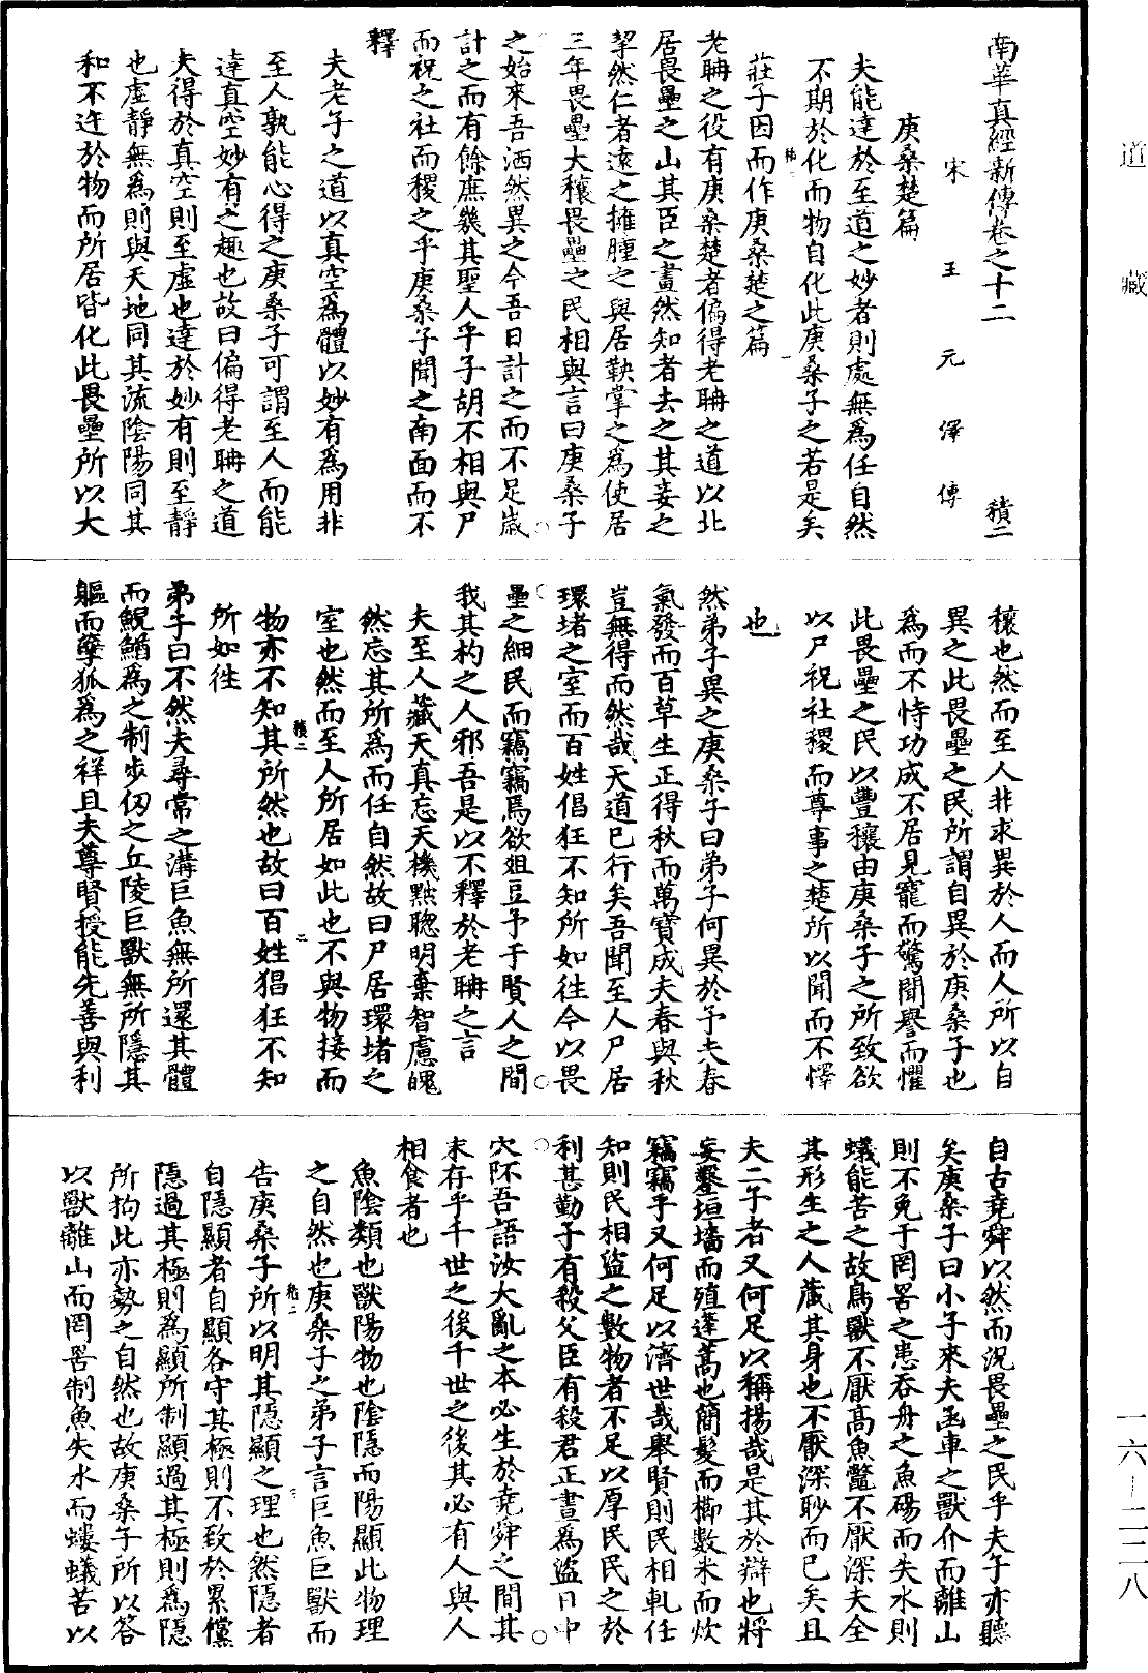 道藏
南華真經新傳卷之十二 積二
宋王元澤傳
庚桑楚篇
夫能達於至道之妙者則處無為任自然
不期於化而物自化此庚桑子之若是矣
莊子因而作庚桑楚之篇
老聃之役有庚桑楚者偏得老聃之道以北
居畏壘之山其臣之畫然知者去之其妾之
挈然仁者遠之擁腫之與居鞅掌之為使居
三年畏壘大穰畏壘之民相與言曰庚桑子
之始來吾洒然異之今吾日計之而不足歲
計之而有餘庶幾其聖人乎子胡不相與尸
而祝之社而稷之乎庚桑子聞之南面而不
釋
夫老子之道以真空為體以妙有為用非
至人孰能心得之庚桑子可謂至人而能
達真空妙有之趣也故曰偏得老聃之道
夫得於真空則至虛也達於妙有則至靜
也虛靜無為則與天地同其流陰陽同其
和不迕於物而所居皆化此畏壘所以大
穰也然而至人非求異於人而人所以自
異之此畏壘之民所謂自異於庚桑子也
為而不恃功成不居見寵而驚聞譽而懼
此畏壘之民以豐穰由庚桑子之所致欲
以尸祝社稷而尊事之楚所以聞而不懌
也
然弟子異之庚桑子曰弟子何異於予夫春
氣發而百草生正得秋而萬寶成夫春與秋
豈無得而然哉天道已行矣吾聞至人尸居
環堵之室而百姓倡狂不知所如往今以畏
壘之細民而竊竊焉欲俎豆予于賢人之間
我其杓之人邪吾是以不釋於老聃之言
夫至人藏天真忘天機黜聰明棄智慮魄
然忘其所為而任自然故曰尸居環堵之
室也然而至人所居如此也不與物接而
物亦不知其所然也故曰百姓猖狂不知
所如往
弟子曰不然夫尋常之溝巨魚無所還其體
而鯢鰌為之制步仞之丘陵巨獸無所隱其
軀而㜸狐為之祥且夫尊賢授能先善與利
自古堯舜以然而況畏壘之民乎夫子亦聽
矣庚桑子曰小子來夫函車之獸介而離山
則不免于罔罟之患吞舟之魚碭而失水則
蟻能苦之故鳥獸不厭高魚鼈不厭深夫全
其形生之人藏其身也不厭深眇而已矣且
夫二子者又何足以稱揚哉是其於辯也將
妄鑿垣墻而殖蓬蒿也簡髮而櫛數米而炊
竊竊乎又何足以濟世哉舉賢則民相軋任
知則民相盜之數物者不足以厚民民之於
利甚勤子有殺父臣有殺君正晝為盜日中
穴阫吾語汝大亂之本必生於堯舜之間其
末存乎千世之後千世之後其必有人與人
相食者也
魚陰類也獸陽物也陰隱而陽顯此物理
之自然也庚桑子之弟子言巨魚巨獸而
告庚桑子所以明其隱顯之理也然隱者
自隱顯者自顯各守其極則不致於累儻
隱過其極則為顯所制顯過其極則為隱
所拘此亦勢之自然也故庚桑子所以答
以獸離山而罔罟制魚失水而螻蟻苦以
一六－二二八